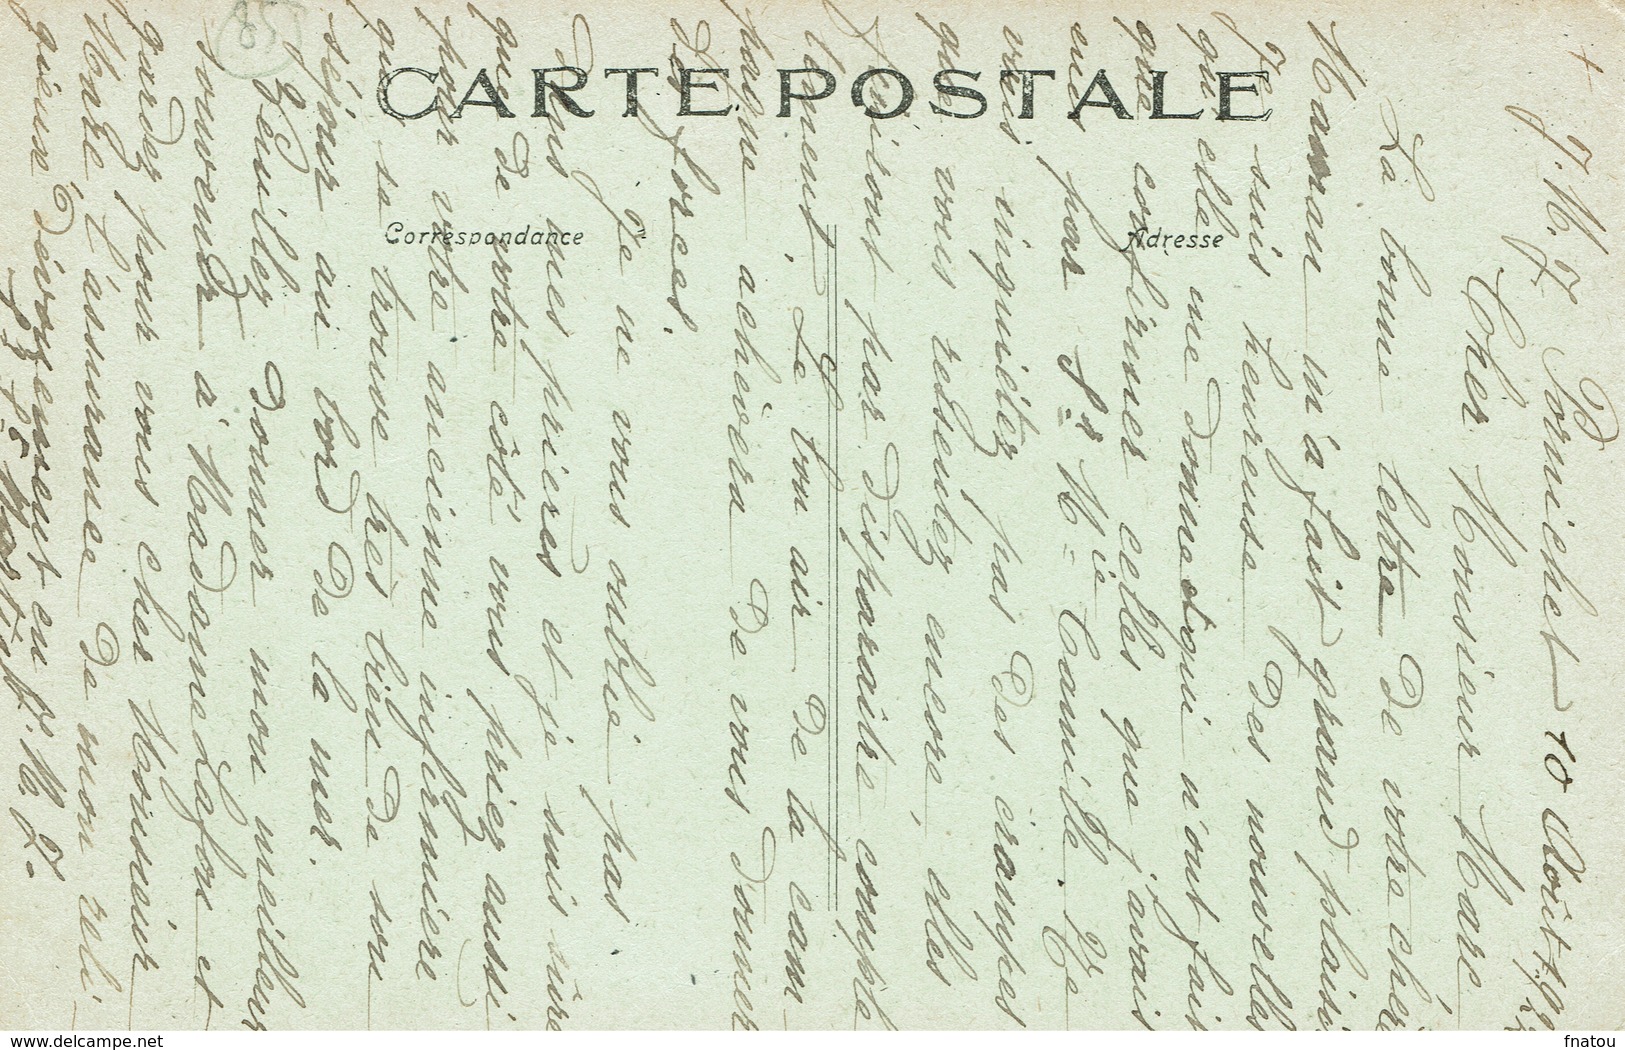 85
CARTE POSTALE
Correspondance
Adresse
+
J. M. J. Pornichet 10 Août
Cher Monsieur Mare
La bonne lettre de votre chère
Maman m'a fait grand plaisir
Je suis heureuse des nouvelles
qu'elle me donne et qui n'ont fait
que confirmer celles que j'avais
eues par Sr Mie Camille. Ne
vous inquiétez pas des crampes
que vous ressentez encore, elles
finiront par disparaître complè
tement. Le bon air de la cam
pagne achèvera de vous donner
des forces.
Je ne vous oublie pas
dans mes prières et je suis sûre
que de votre côté vous priez aussi
pour votre ancienne infirmière
qui se trouve très bien de son
séjour au bord de la mer.
Veuillez donner mon meilleur
souvenir à Madame Lafon et
gardez pour vous cher Monsieur
Mare l'assurance de mon reli
gieux dévouement en N.